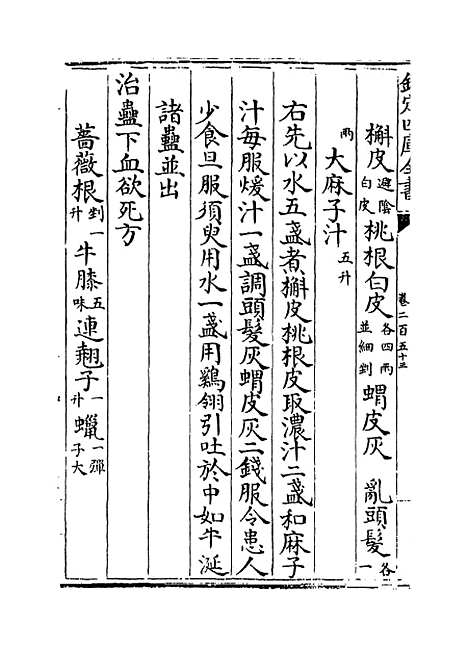 欽定四庫全書 卷二百五十三
槲皮避陰白皮桃根白皮各四兩並細剉蝟皮灰 亂頭髮各一
兩大麻子汁五升
右先以水五盞煮槲皮桃根皮取濃汁二盞和麻子
汁每服煖汁一盞調頭髮灰蝟皮灰二錢服令患人
少食旦服須臾用水一盞用鷄翎引吐於中如牛涎
諸蠱並出
治蠱下血欲死方
薔薇根剉一升牛膝五味連翹子一升蠟一彈子大